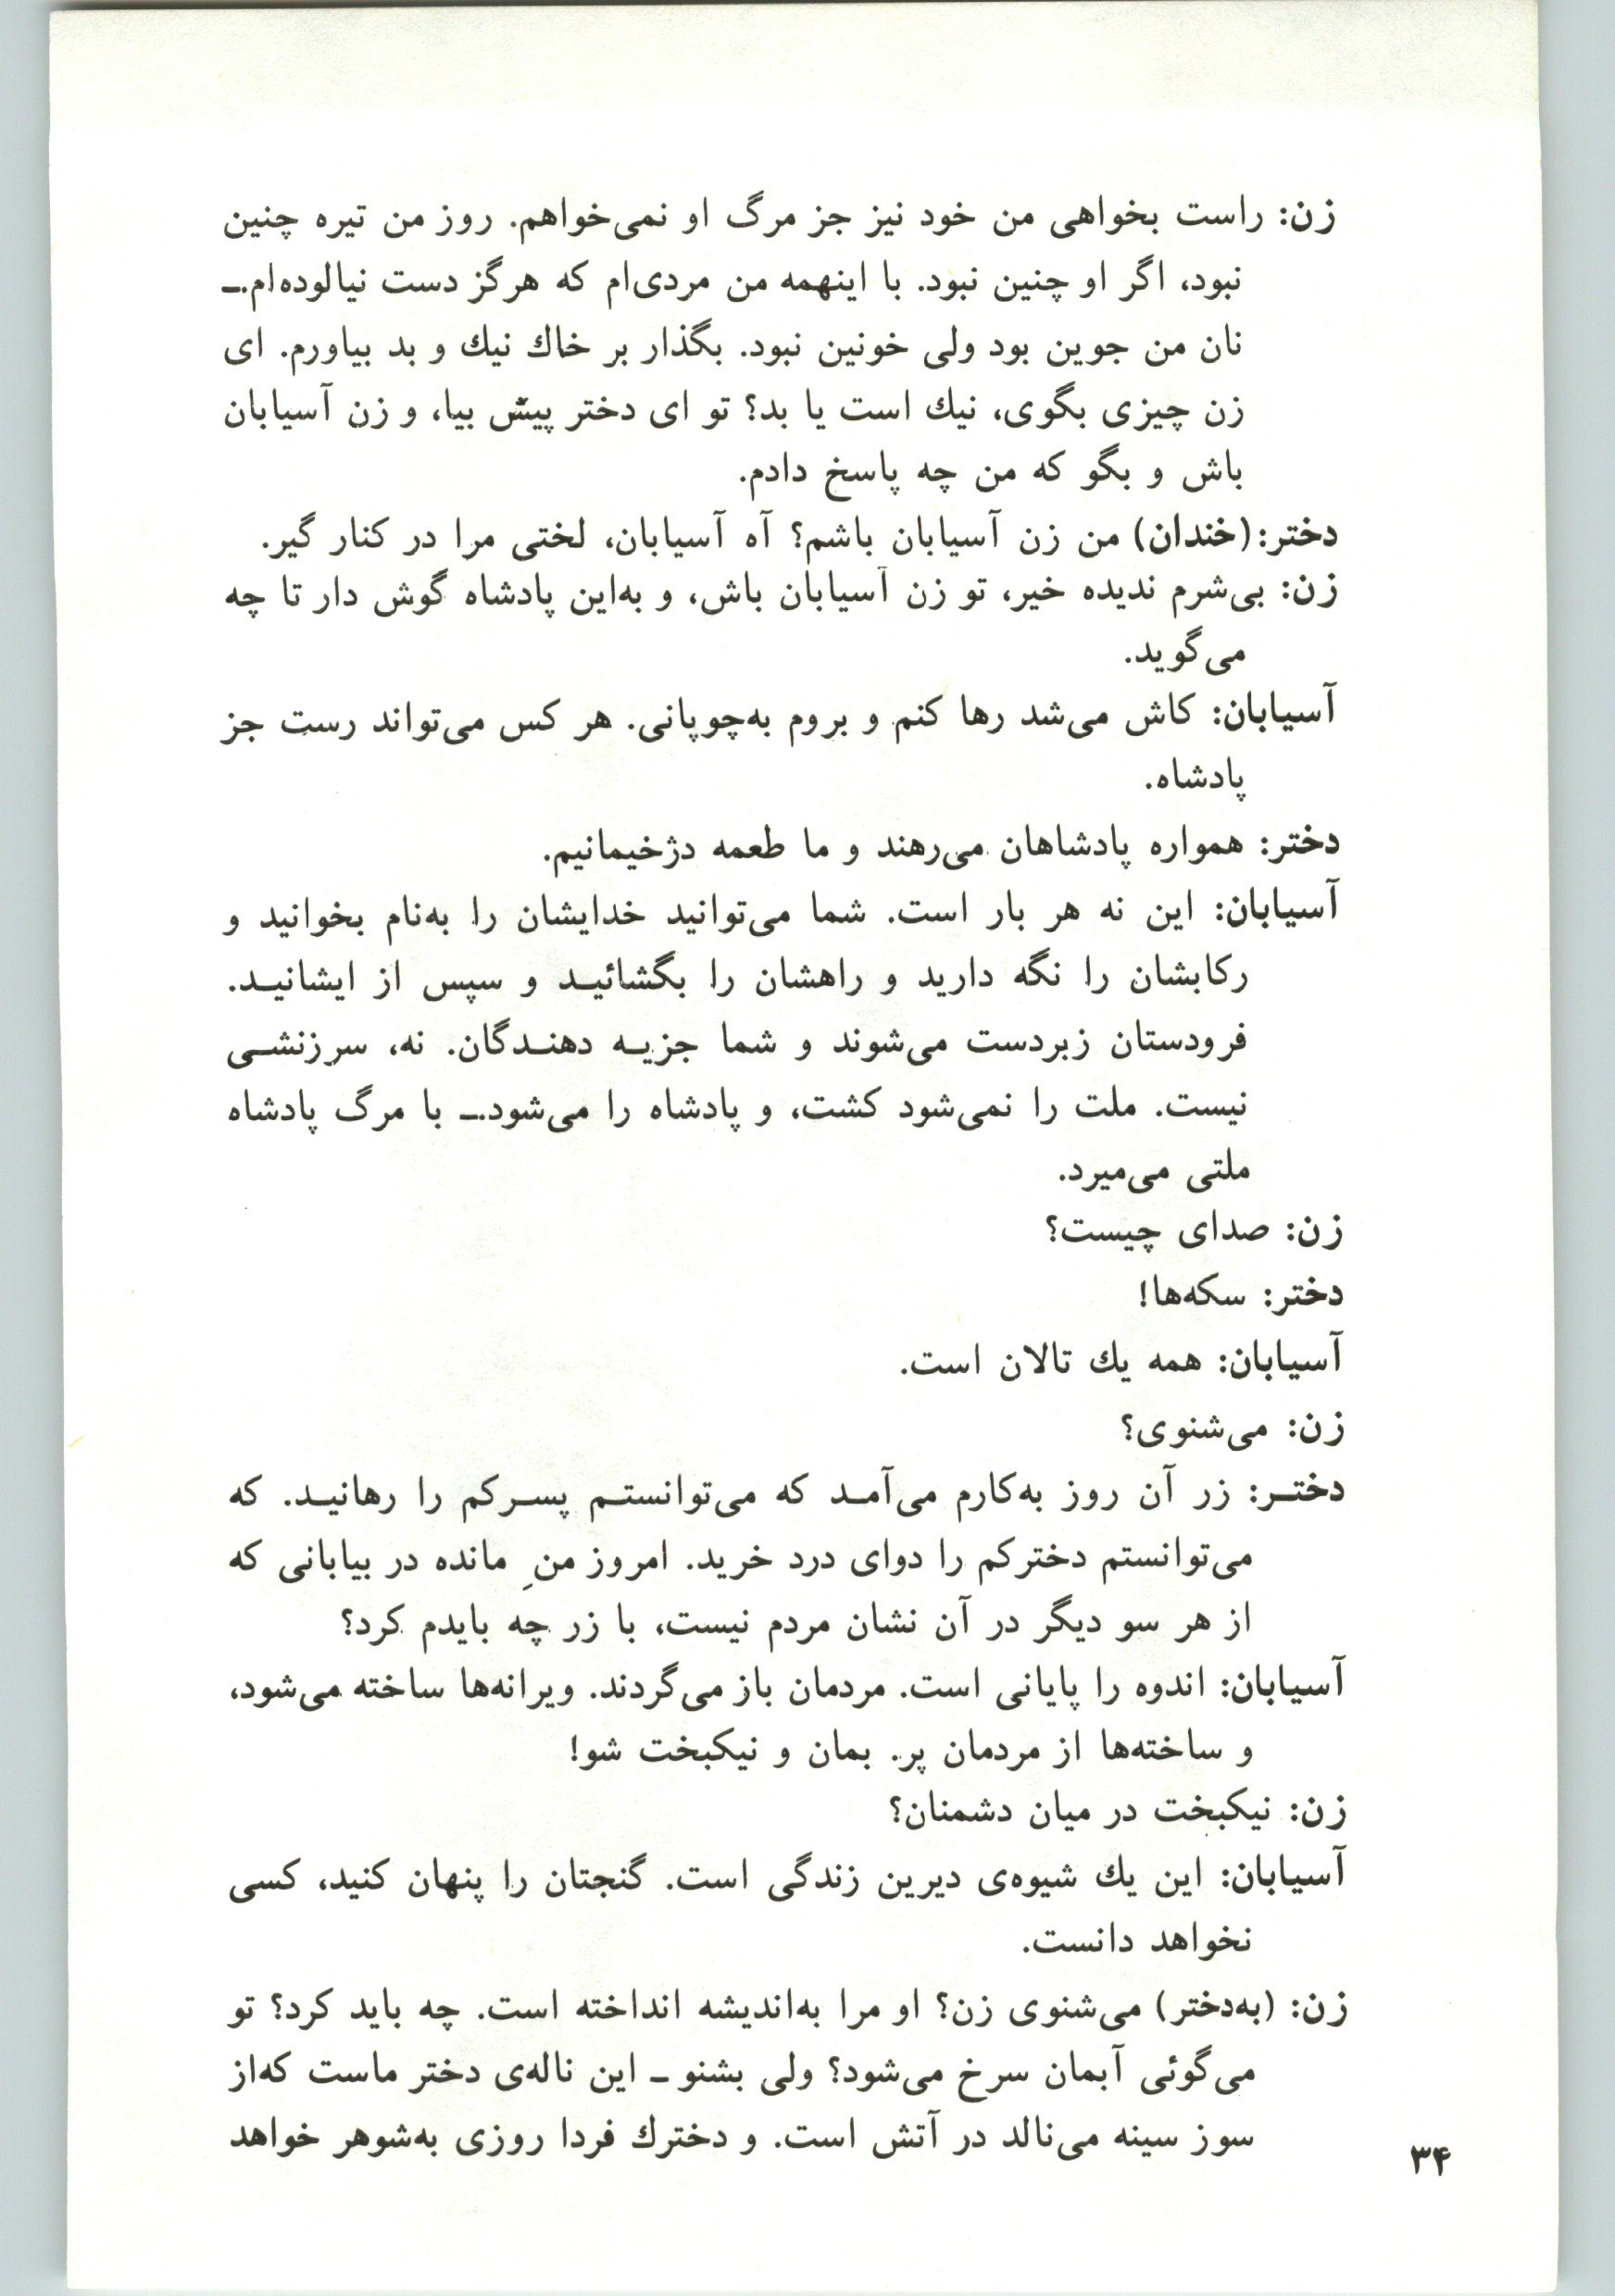 زن: راست بخواهی من خود نیز جز مرگ او نمی‌خواهم. روز من تیره چنین
نبود، اگر او چنین نبود. با اینهمه من مردی‌ام که هرگز دست نیالوده‌ام.ــ
نان من جوین بود ولی خونین نبود. بگذار بر خاك نیك و بد بیاورم. ای
زن چیزی بگوی، نیك است یا بد؟ تو ای دختر پیش بیا، و زن آسیابان
باش و بگو که من چه پاسخ دادم.
دختر: (خندان) من زن آسیابان باشم؟ آه آسیابان، لختی مرا در کنار گیر.
زن: بی‌شرم ندیده خیر، تو زن آسیابان باش، و به‌این پادشاه گوش دار تا چه
می‌گوید.
آسیابان: کاش می‌شد رها کنم و بروم به‌چوپانی. هر کس می‌تواند رست جز
پادشاه.
دختر: همواره پادشاهان می‌رهند و ما طعمه دژخیمانیم.
آسیابان: این نه هر بار است. شما می‌توانید خدایشان را به‌نام بخوانید و
رکابشان را نگه دارید و راهشان را بگشائیـد و سپس از ایشانیـد.
فرودستان زبردست می‌شوند و شما جزیـه دهنـدگان. نه، سرزنشـی
نیست. ملت را نمی‌شود کشت، و پادشاه را می‌شود.ــ با مرگ پادشاه
ملتی می‌میرد.
زن: صدای چیست؟
دختر: سکه‌ها!
آسیابان: همه یك تالان است.
زن: می‌شنوی؟
دختـر: زر آن روز به‌کارم می‌آمـد که می‌توانستـم پسـرکم را رهانیـد. که
می‌توانستم دخترکم را دوای درد خرید. امروز منِ مانده در بیابانی که
از هر سو دیگر در آن نشان مردم نیست، با زر چه بایدم کرد؟
آسیابان: اندوه را پایانی است. مردمان باز می‌گردند. ویرانه‌ها ساخته می‌شود،
و ساخته‌ها از مردمان پر. بمان و نیکبخت شو!
زن: نیکبخت در میان دشمنان؟
آسیابان: این یك شیوه‌ی دیرین زندگی است. گنجتان را پنهان کنید، کسی
نخواهد دانست.
زن: (به‌دختر) می‌شنوی زن؟ او مرا به‌اندیشه انداخته است. چه باید کرد؟ تو
می‌گوئی آبمان سرخ می‌شود؟ ولی بشنو ـ این ناله‌ی دختر ماست که‌از
سوز سینه می‌نالد در آتش است. و دخترك فردا روزی به‌شوهر خواهد
۳۴